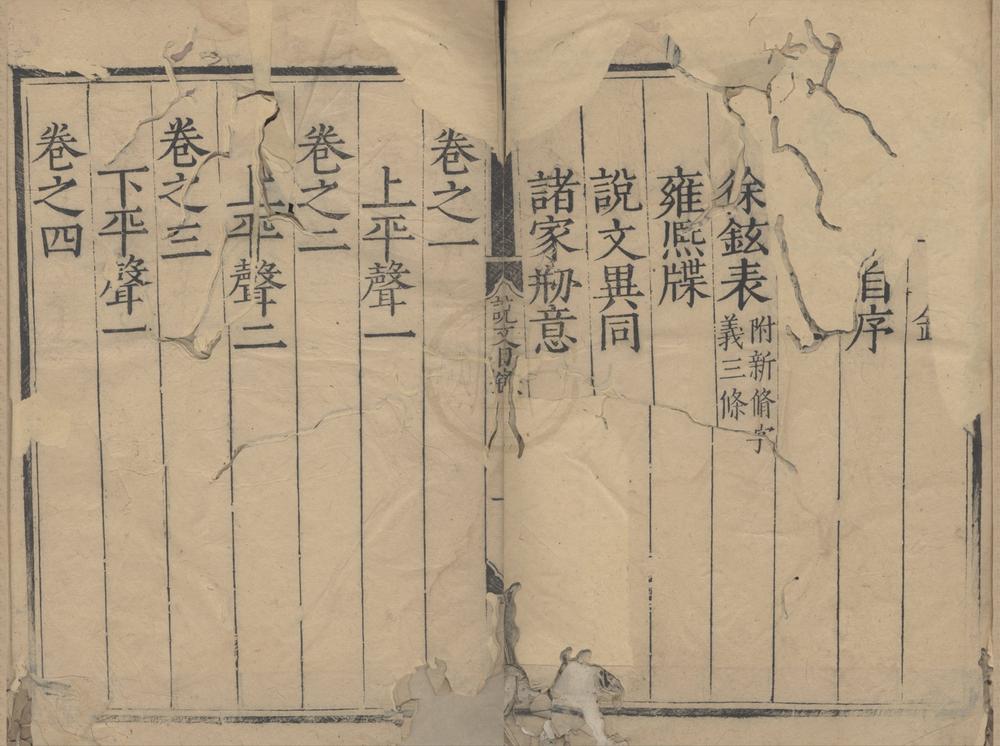 自序
徐鉉表附新脩字義三條
雍熈牒
説文異同
諸家刱意
説文目錄
一
卷之一
上平聲一
卷之二
上平聲二
卷之三
下平聲一
卷之四